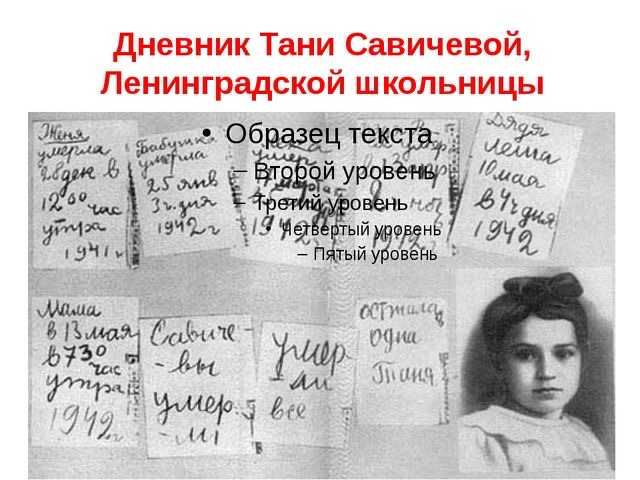 Дневник Тани Савичевой,
Ленинградской школьницы
• Образец текста
– Второй уровень
– Третий уровень
• Четвертый уровень
– Пятый уровень
Женя
умерла
28 ден в
12 00 час
утра
1941 г
Бабушка
умерла
25 янв
3 ч. дня
1942 г
умер
1942
Дядя
Леша
10 мая
в 4 ч дня
1942
Мама
в 13 мая
в 7 30
час
утра
1942 г
Савиче-
-вы
умер-
-лі
умер-
-ли
все
осталась
одна
Таня